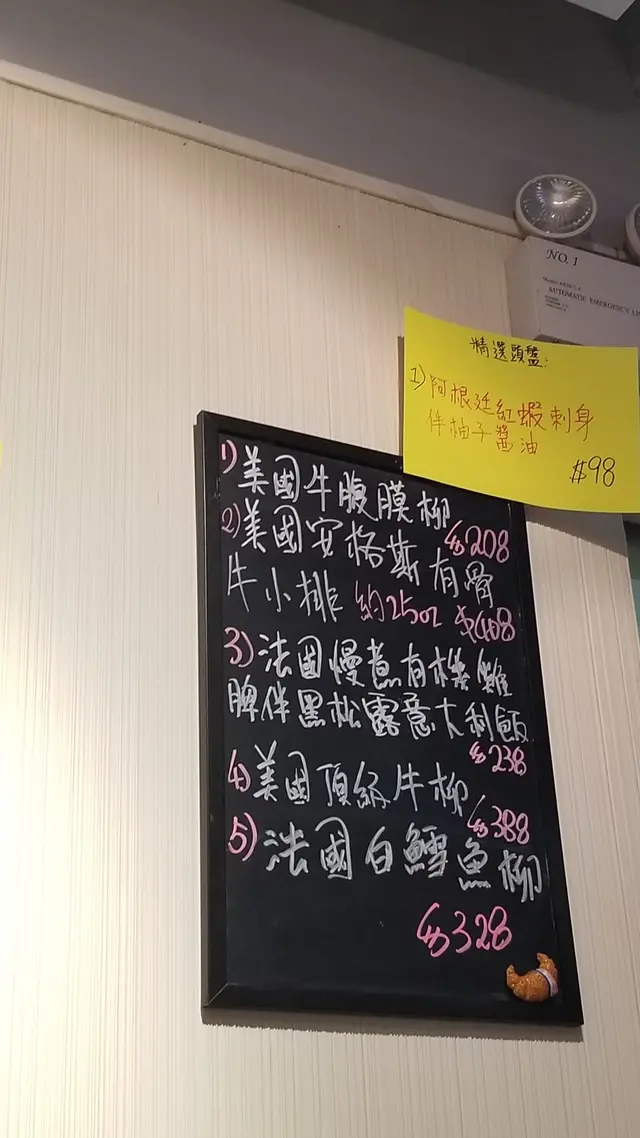 NO. 1
AUTOMATIC EMERGENCY LI
精選頭盤:
1) 阿根廷紅蝦刺身
伴柚子醬油
$98
1) 美國牛腹膜柳
$208
2) 美國安格斯有骨
牛小排 約25oz $408
3) 法國慢煮有機雞
脾伴黑松露意大利飯
$238
4) 美國頂級牛柳
$388
5) 法國白鱈魚柳
$328